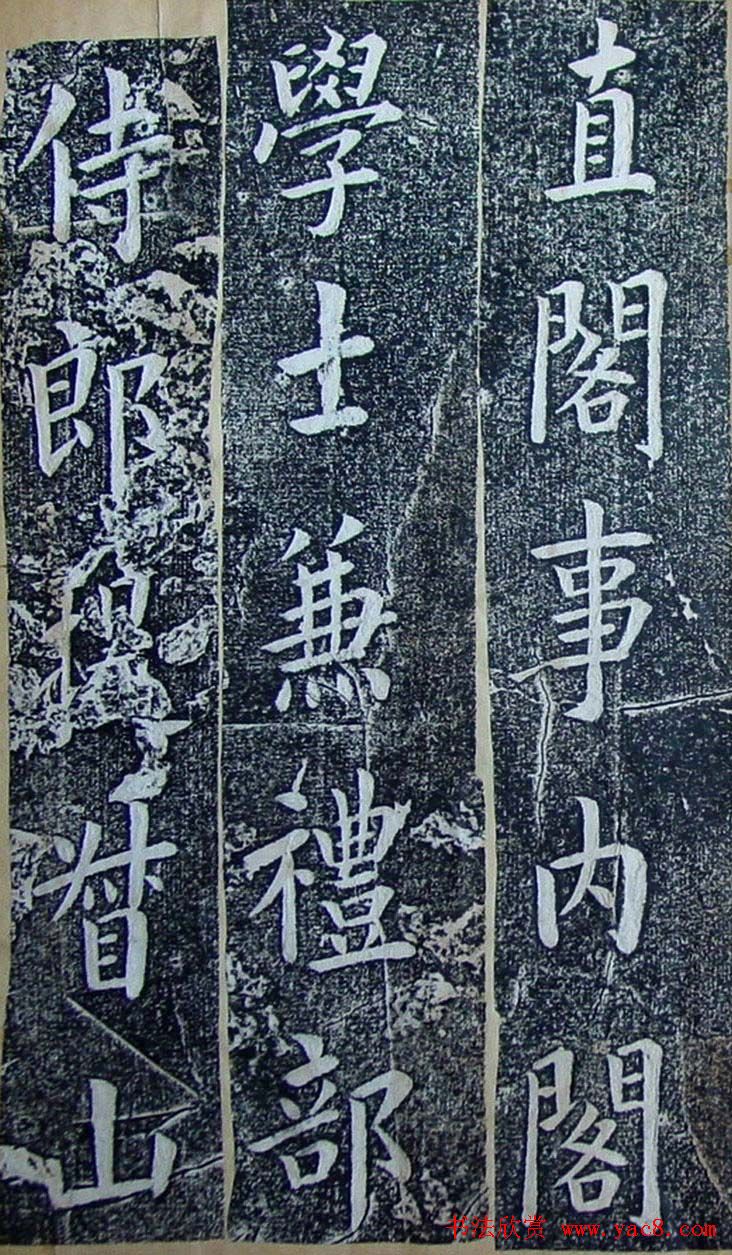 直閣事内閣
學士兼禮部
侍郎提督山
书法欣赏 www.yac8.com